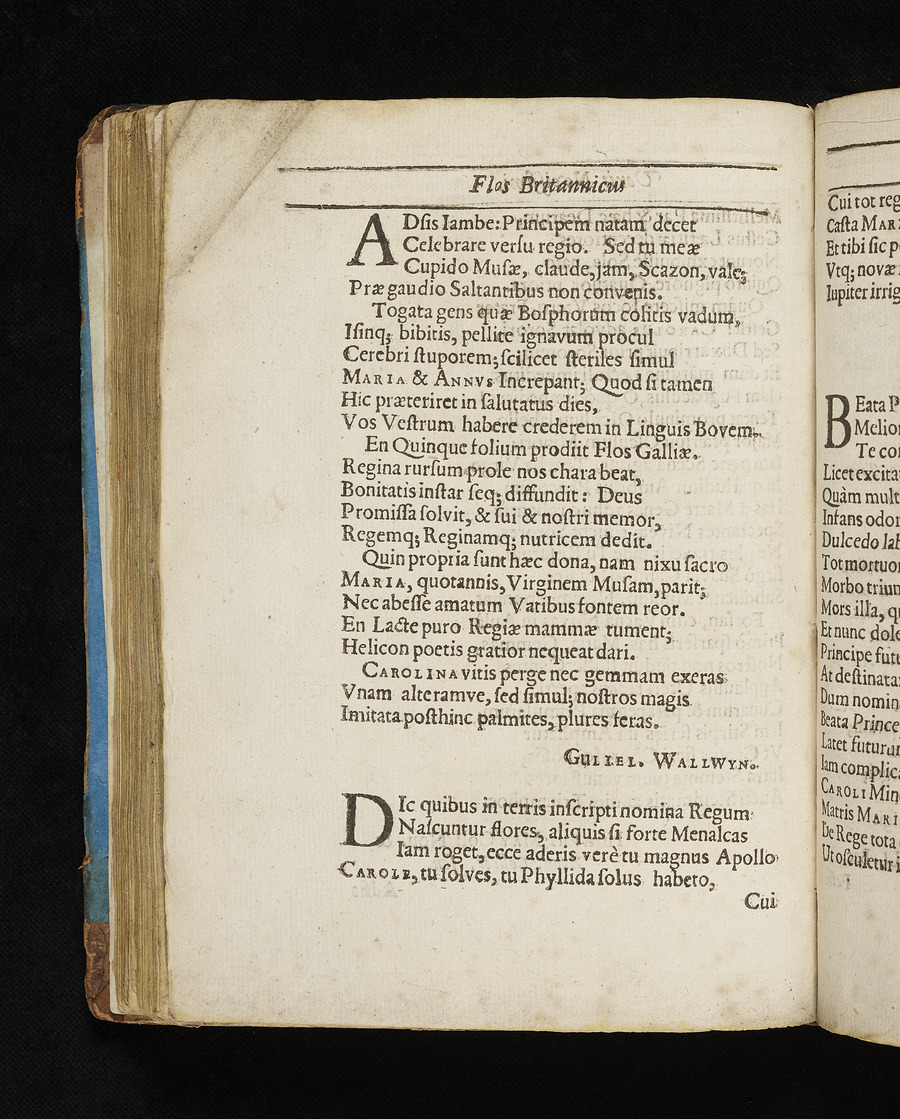 Flos Britannicus
ADſis Iambe: Principem natam decet
Celebrare verſu regio. Sed tu meæ
Cupido Muſæ, claude, jam, Scazon, vale;
Præ gaudio Saltantibus non convenis.
Togata gens quæ Boſphorum colitis vadum,
Iſinq; bibitis, pellite ignavum procul
Cerebri ſtuporem; ſcilicet ſteriles ſimul
MARIA & ANNVS Increpant; Quod ſi tamen
Hic præteriret in ſalutatus dies,
Vos Veſtrum habere crederem in Linguis Bovem.
En Quinque folium prodiit Flos Galliæ.
Regina rurſum prole nos chara beat,
Bonitatis inſtar ſeq; diffundit: Deus
Promiſſa ſolvit, & ſui & noſtri memor,
Regemq; Reginamq; nutricem dedit.
Quin propria ſunt hæc dona, nam nixu ſacro
MARIA, quotannis, Virginem Muſam, parit;
Nec abeſſe amatum Vatibus fontem reor.
En Lacte puro Regiæ mammæ tument;
Helicon poetis gratior nequeat dari.
CAROLINA vitis perge nec gemmam exeras
Vnam alteramve, ſed ſimul; noſtros magis
Imitata poſthinc palmites, plures feras.
GULIEL. WALLWYN.
DIc quibus in terris inſcripti nomina Regum
Naſcuntur flores, aliquis ſi forte Menalcas
Iam roget, ecce aderis verè tu magnus Apollo
CAROLE, tu ſolves, tu Phyllida ſolus habeto,
Cui
Cui tot reg
Caſta MAR
Et tibi ſic p
Vtq; novæ
Iupiter irrig
BEata P
Melior
Te co
Licet excita
Quàm mult
Infans odor
Dulcedo lab
Tot mortuo
Morbo trium
Mors illa, q
Et nunc dole
Principe futu
At deſtinata
Dum nomin
Beata Prince
Latet futuru
Iam complic
CAROLI Min
Matris MARI
De Rege tota
Ut oſculetur i